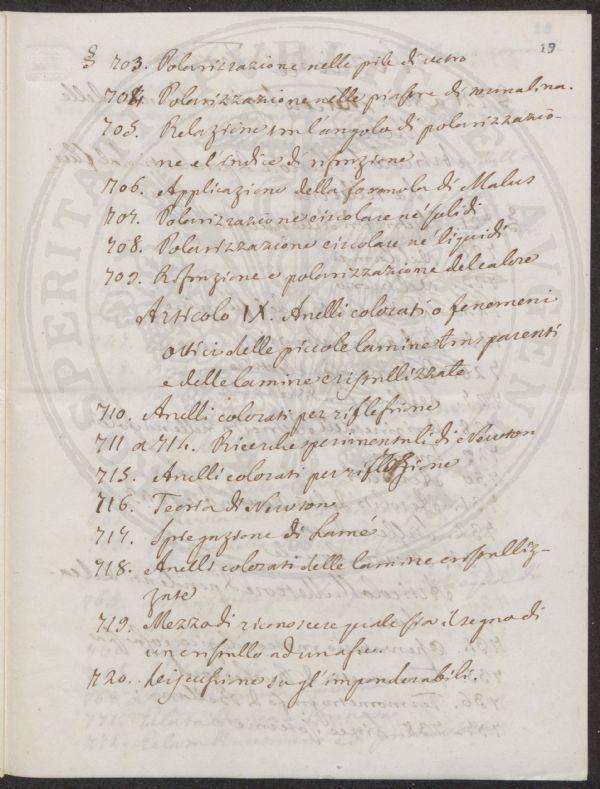 19
§ 703. Polarizzazione nelle pile di vetro
704. Polarizzazione nelle piastre di tormalina.
705. Relazione tra l'angolo di polarizzazio-
ne e l'indice di rifrazione
706. Applicazione della formola di Malus
707. Polarizzazione circolare ne' solidi
708. Polarizzazione circolare ne' liquidi
709. Rifrazione e polarizzazione del calore
Articolo IX. Anelli colorati o fenomeni
ottici delle piccole lamine trasparenti
e delle lamine cristallizzate
710. Anelli colorati per riflessione
711 a 714. Ricerche sperimentali di Newton
715. Anelli colorati per rifrazione
716. Teoria di Newton
717. Spiegazione di Lamé
718. Anelli colorati delle lamine cristalliz-
zate
719. Mezzo di riconoscere quale sia il segno di
un cristallo ad un asse.
720. Discussione su gl'imponderabili.